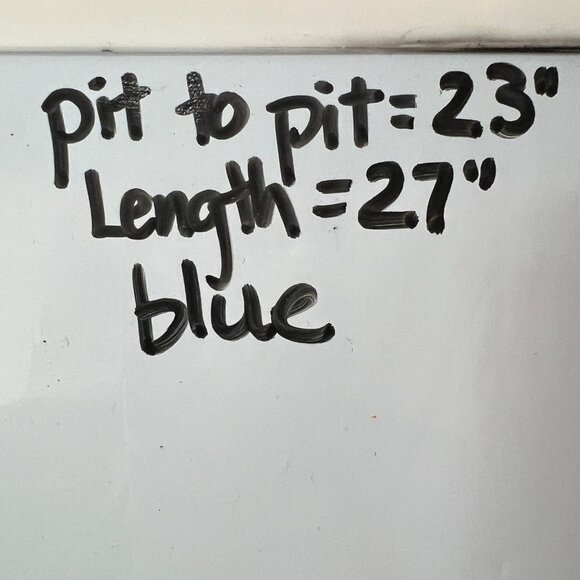 pit to pit = 23"
Length = 27"
blue